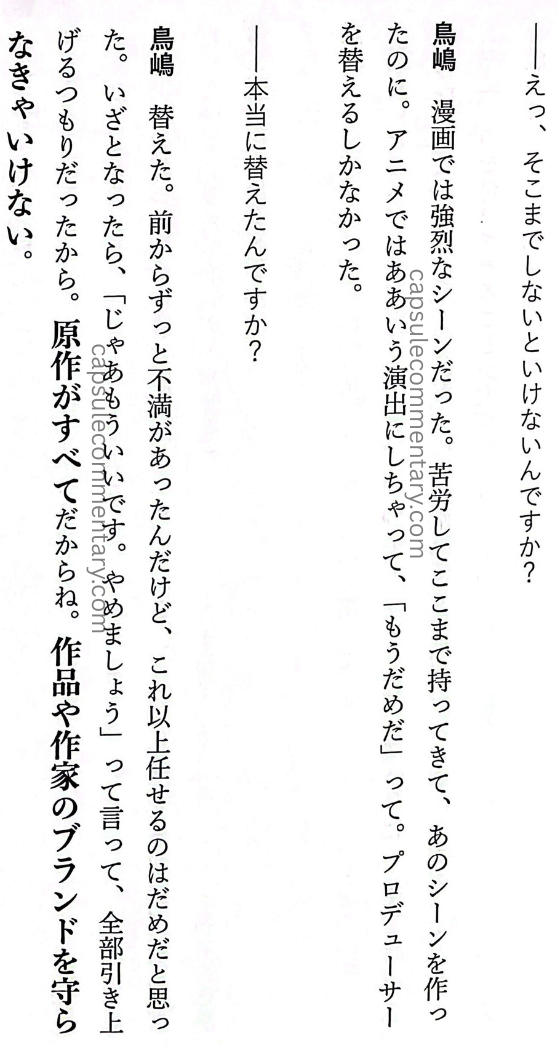 ――えっ、そこまでしないといけないんですか？
鳥嶋　漫画では強烈なシーンだった。苦労してここまで持ってきて、あのシーンを作っ
たのに。アニメではああいう演出にしちゃって、「もうだめだ」って。プロデューサー
を替えるしかなかった。
――本当に替えたんですか？
鳥嶋　替えた。前からずっと不満があったんだけど、これ以上任せるのはだめだと思っ
た。いざとなったら、「じゃあもういいです。やめましょう」って言って、全部引き上
げるつもりだったから。原作がすべてだからね。作品や作家のブランドを守ら
なきゃいけない。
capsulecommentary.com
capsulecommentary.com